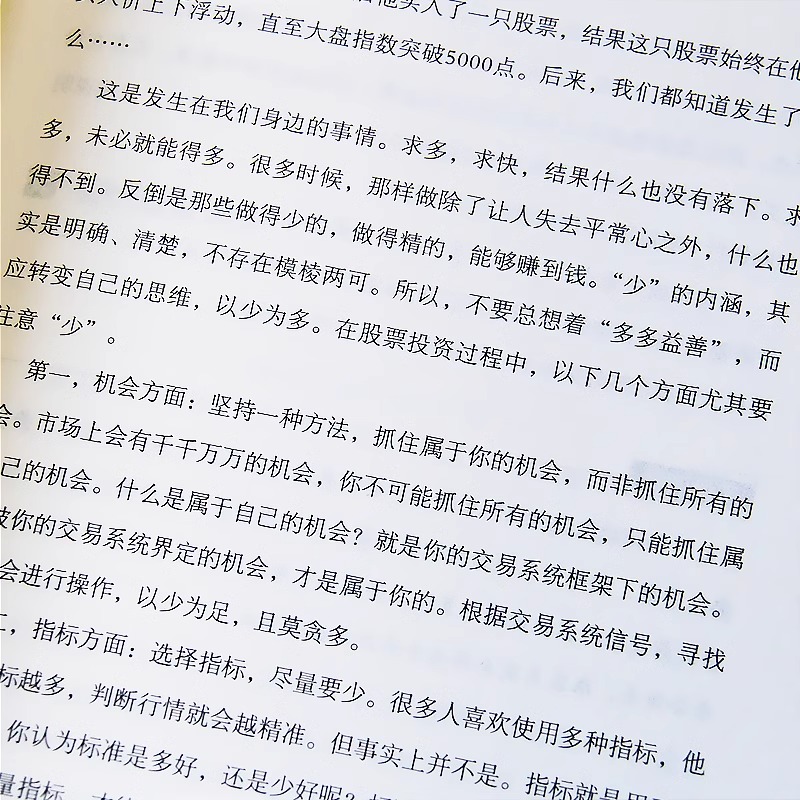 他买入了一只股票，结果这只股票始终在他
买入价上下浮动，直至大盘指数突破5000点。后来，我们都知道发生了
么……
这是发生在我们身边的事情。求多，求快，结果什么也没有落下。求
多，未必就能得多。很多时候，那样做除了让人失去平常心之外，什么也
得不到。反倒是那些做得少的，做得精的，能够赚到钱。“少”的内涵，其
实是明确、清楚，不存在模棱两可。所以，不要总想着“多多益善”，而
应转变自己的思维，以少为多。在股票投资过程中，以下几个方面尤其要
注意“少”。
第一，机会方面：坚持一种方法，抓住属于你的机会，而非抓住所有的
会。市场上会有千千万万的机会，你不可能抓住所有的机会，只能抓住属
己的机会。什么是属于自己的机会？就是你的交易系统框架下的机会。
被你的交易系统界定的机会，才是属于你的。根据交易系统信号，寻找
会进行操作，以少为足，且莫贪多。
二，指标方面：选择指标，尽量要少。很多人喜欢使用多种指标，他
标越多，判断行情就会越精准。但事实上并不是。指标就是
你认为标准是多好，还是少好呢？
量指标，